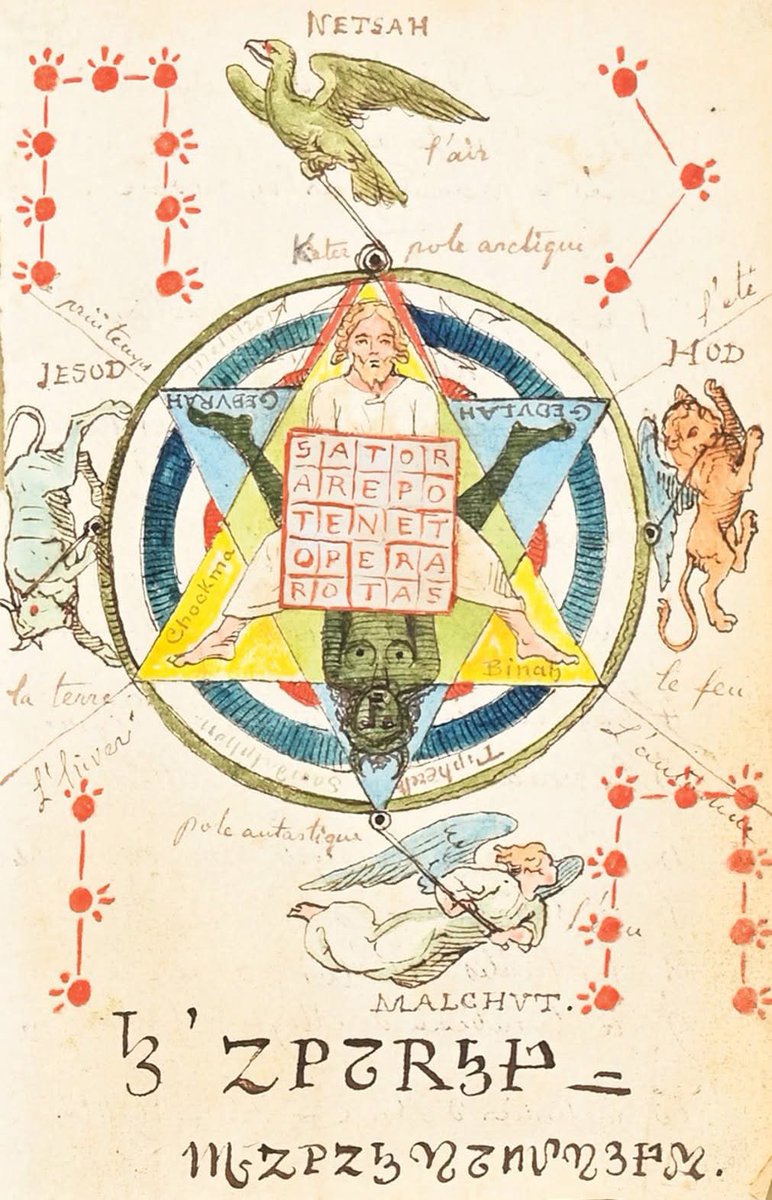 NETSAH
l'air
Keter pole arctique
printemps
l'été
JESOD
HOD
GEBURAH
GEDULAH
SATOR
AREPO
TENET
OPERA
ROTAS
Chockma
Binah
la terre
le feu
L'hiver
L'automne
Tiphereth
pole antartique
l'eau
MALCHUT.